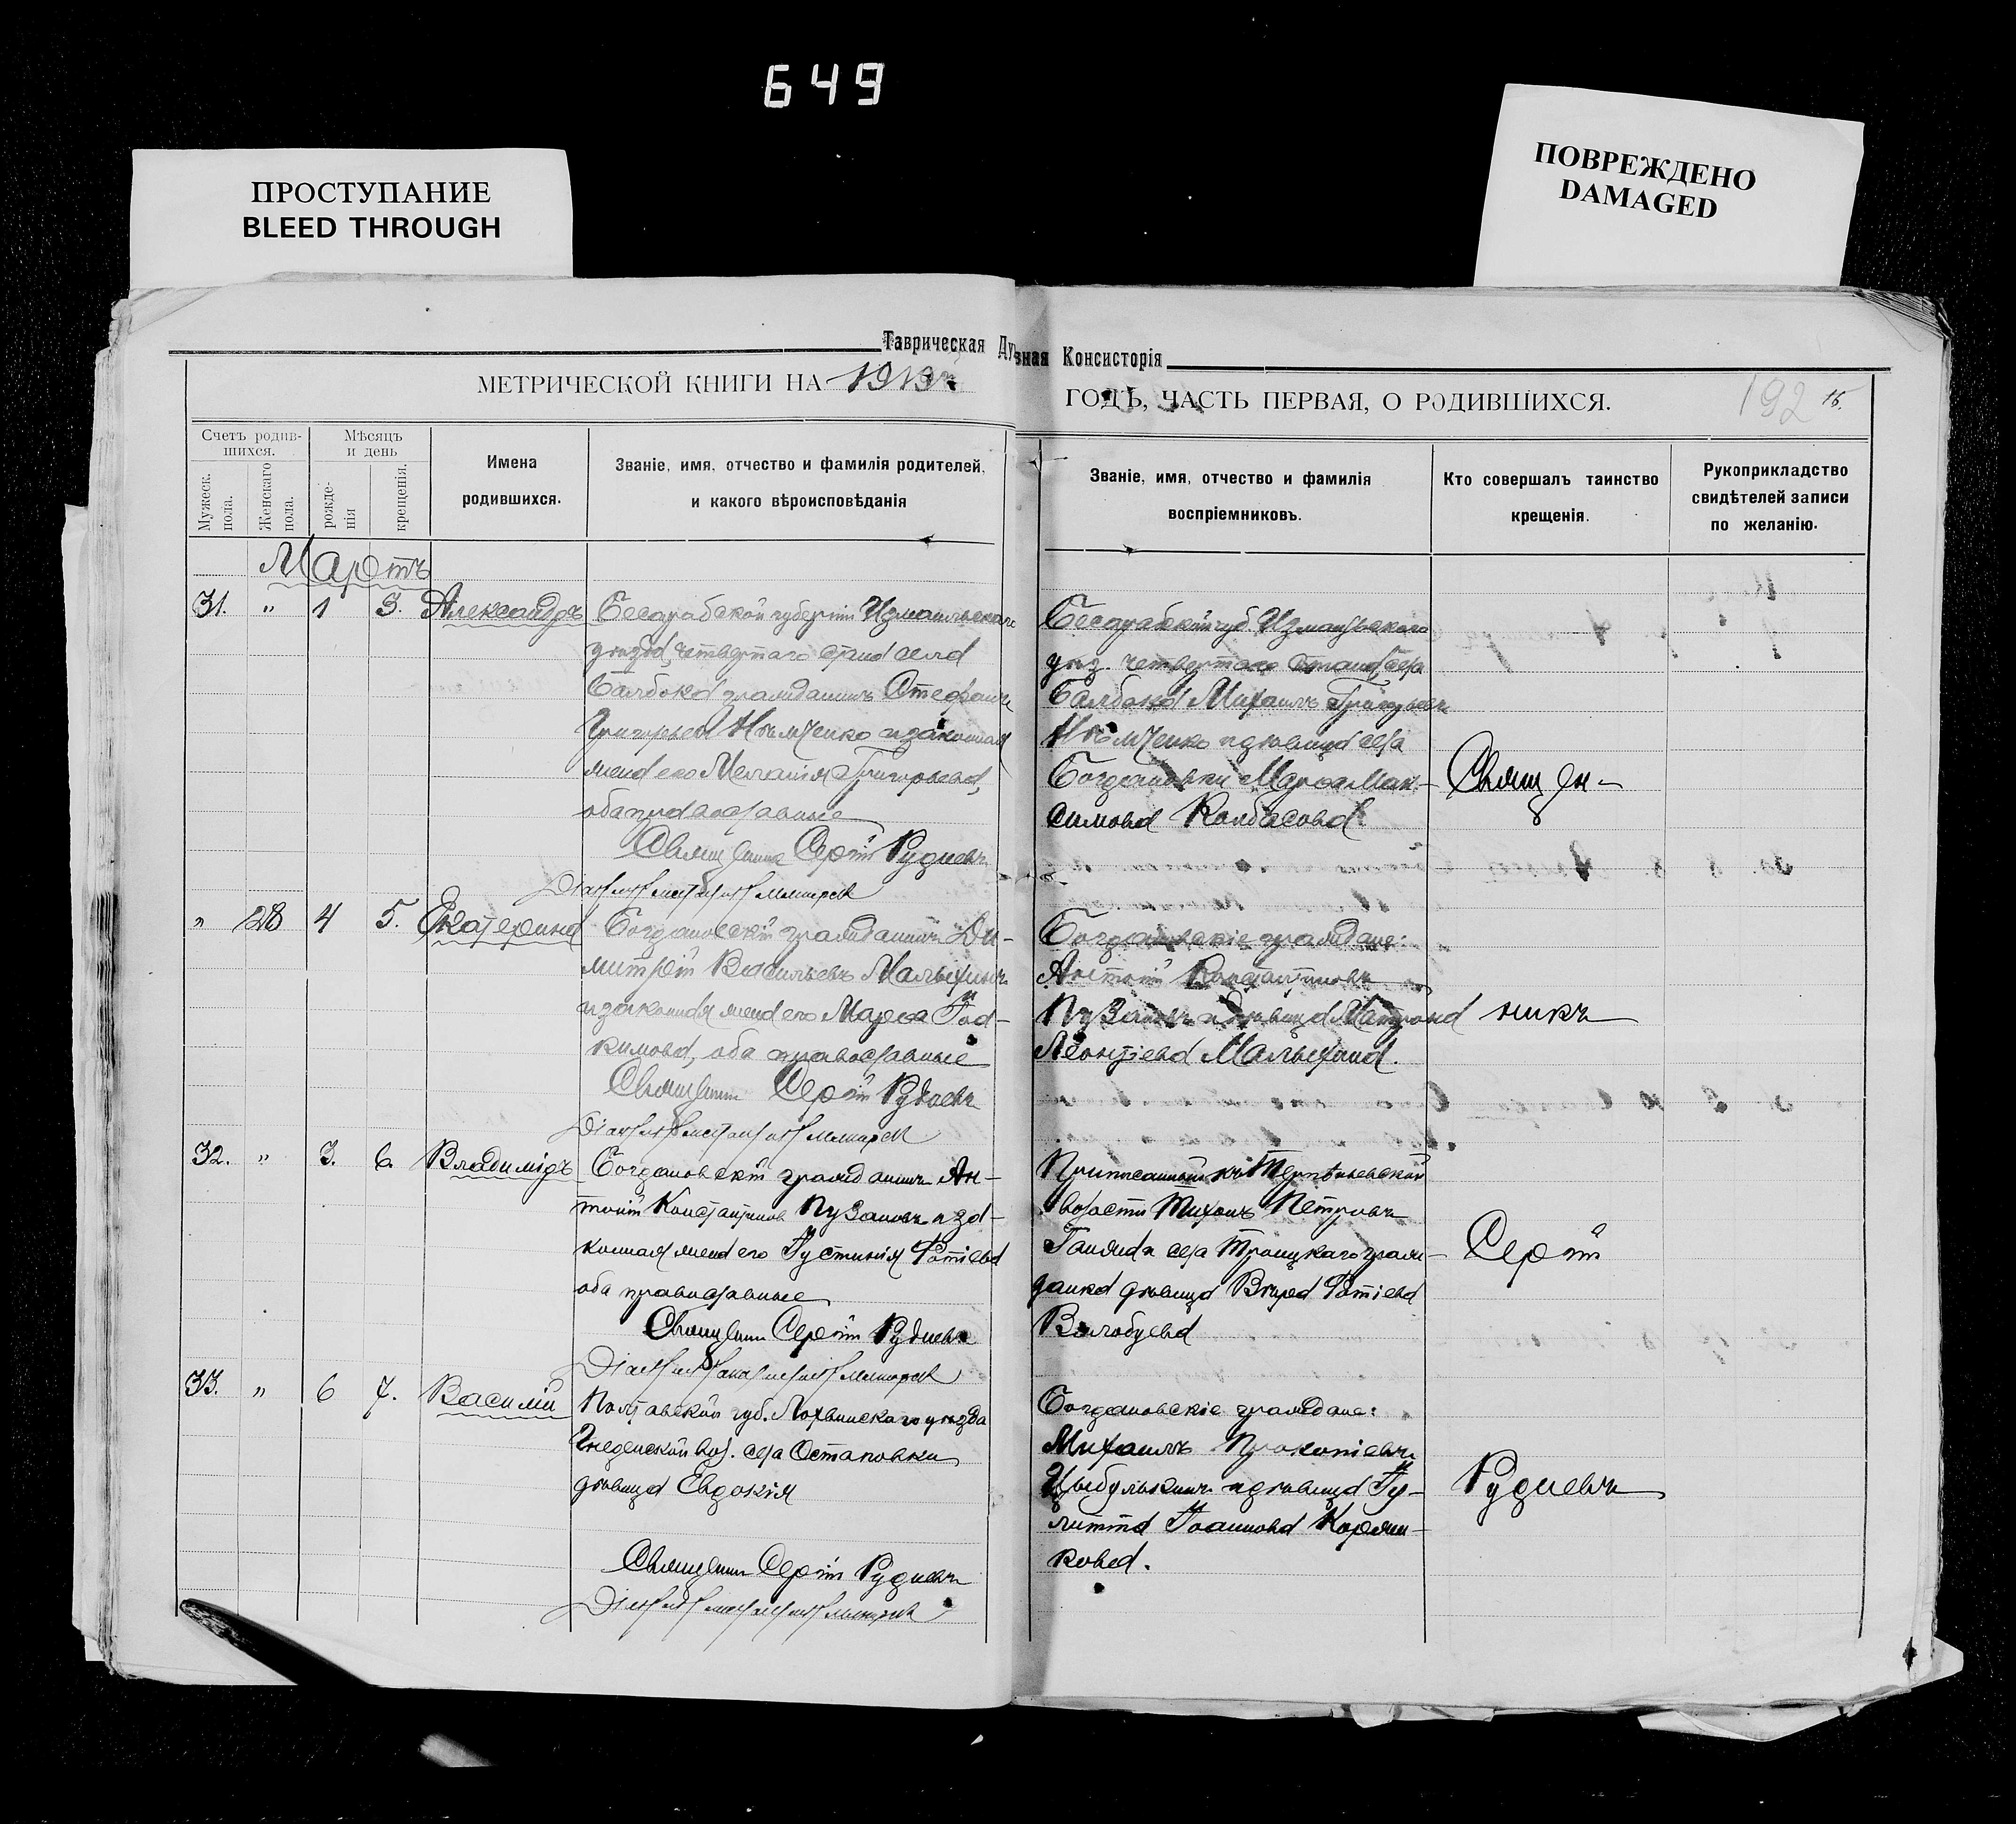 649
ПРОСТУПАНИЕ
BLEED THROUGH
ПОВРЕЖДЕНО
DAMAGED
Таврическая Духовная Консисторія
МЕТРИЧЕСКОЙ КНИГИ НА 1919
ГОДЪ, ЧАСТЬ ПЕРВАЯ, О РОДИВШИХСЯ.
192
Счетъ родив-
шихся.
Мужеск. пола.
Женскаго пола.
Мѣсяцъ
и день
рожде-
нія
крещенія.
Имена
родившихся.
Званіе, имя, отчество и фамилія родителей,
и какого вѣроисповѣданія
Званіе, имя, отчество и фамилія
воспріемниковъ.
Кто совершалъ таинство
крещенія.
Рукоприкладство
свидѣтелей записи
по желанію.
Мартъ
31. " 1 3. Александръ
Бесарабской губерніи Измаильскаго
уѣзда, четвертаго стана села
Балбока гражданинъ Стефанъ
Григорьевъ Нѣмченко и законная
жена его Мелания Григорьева,
оба православные
Священникъ Сергій Рудневъ
Бесарабской губ. Измаильскаго
уѣз. четвертаго стана, села
Балбока Михаилъ Григорьевъ
Нѣмченко и дѣвица села
Богдановки Марфа Мак-
симова Колбасова.
" 28 4 5. Екатерина
Богдановскій гражданинъ Ди-
митрій Васильевъ Малыхинъ
и законная жена его Марфа Іоа-
кимова, оба православные
Священникъ Сергій Рудневъ
Богдановскіе граждане:
Антоній Константиновъ
Пузановъ и дѣвица Матрона
Леонтіева Малыхина.
32. " 3. 6. Владиміръ
Богдановскій гражданинъ Ан-
тоній Константинов Пузановъ и за-
конная жена его Іустинія Фотіева
оба православные
Священникъ Сергій Рудневъ
Приписанный къ Терпѣньевской
волости Тихонъ Петровъ
села Троицкаго граж-
данка дѣвица Вѣра Фотіева
Волобуева
33. " 6 7. Василій
Полтавской губ. Лохвицкаго уѣзда
вол. села Остаповки
дѣвица Евдокія
Священникъ Сергій Рудневъ
Богдановскіе граждане:
Михаилъ Прокопіевъ
Цыбулькинъ и дѣвица Іу-
литта Іоаннова Корми-
кова.
Священ-
никъ
Сергій
Рудневъ